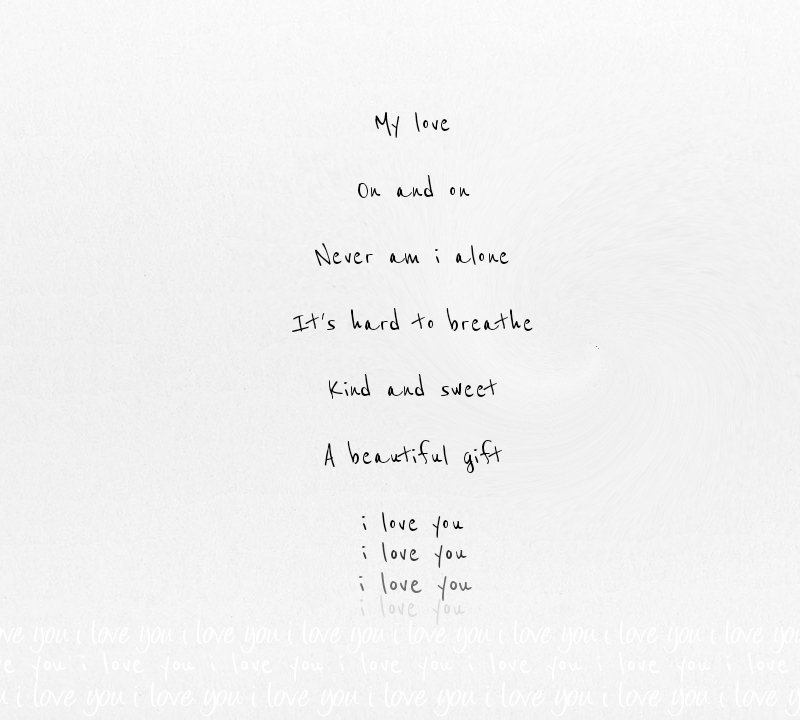 My love
On and on
Never am i alone
It's hard to breathe
Kind and sweet
A beautiful gift
i love you
i love you
i love you
i love you
ove you i love you i love you i love you i love you i love you i love you i love yo
e you i love you i love you i love you i love you i love you i love
u i love you i love you i love you i love you i love you i love you i love you